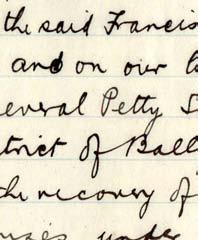 the said Francis
and on our b
several Petty S
strict of Ball
the recovery of
under